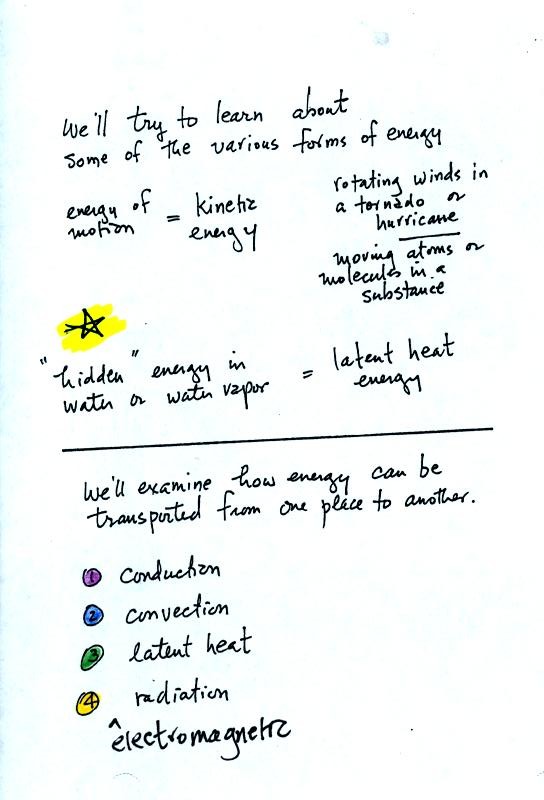 We'll try to learn about
some of the various forms of energy
energy of
motion
=
kinetic
energy
rotating winds in
a tornado or
hurricane
moving atoms or
molecules in a
substance
"hidden" energy in
water or water vapor
=
latent heat
energy
We'll examine how energy can be
transported from one place to another.
1 conduction
2 convection
3 latent heat
4 radiation
^
electromagnetic